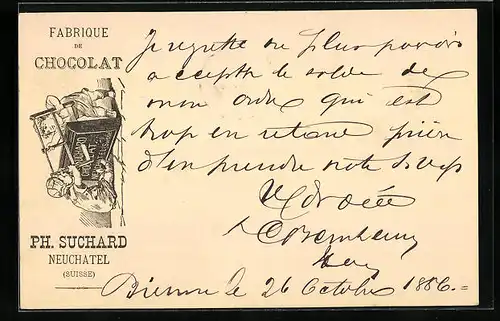 FABRIQUE
DE
CHOCOLAT
PH. SUCHARD
NEUCHATEL
(SUISSE)
Je regrette ne plus pouvoir
accepter le solde de
mon ordre qui est
trop en retard prière
d'en prendre note
Bienne le 26 Octobre 1886.=